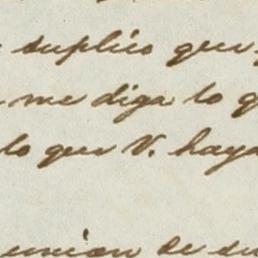 suplico que
me diga lo q
lo que V. haya
union de su